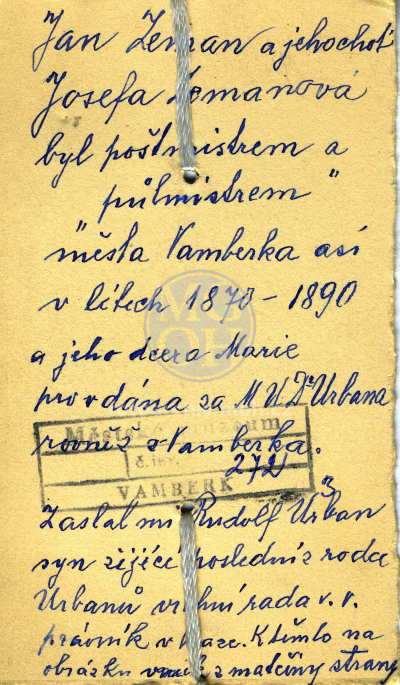 Jan Zeman a jehochoť
Josefa Zemanová
byl poštmistrem a
půlmistrem "
" města Vamberka asi
v létech 1870 - 1890
a jeho dcera Marie
provdána za MUDr Urbana
rovněž z Vamberka.
Městské muzeum
č. inv. 272
VAMBERK
Zaslal mi Rudolf Urban
syn žijící poslední z rodu
Urbanů vrchní rada v. v.
právník v Praze. K těmto na
obrázku vnuk z matčiny strany